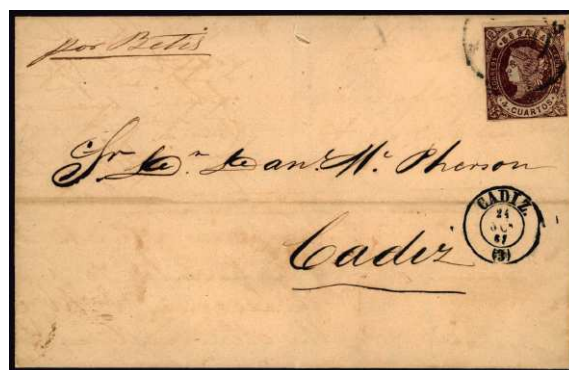 por Betis
ESPAÑA
4 CUARTOS
Sr Dn Dan. Mc Pherson
CADIZ.
24
61
(3)
Cadiz